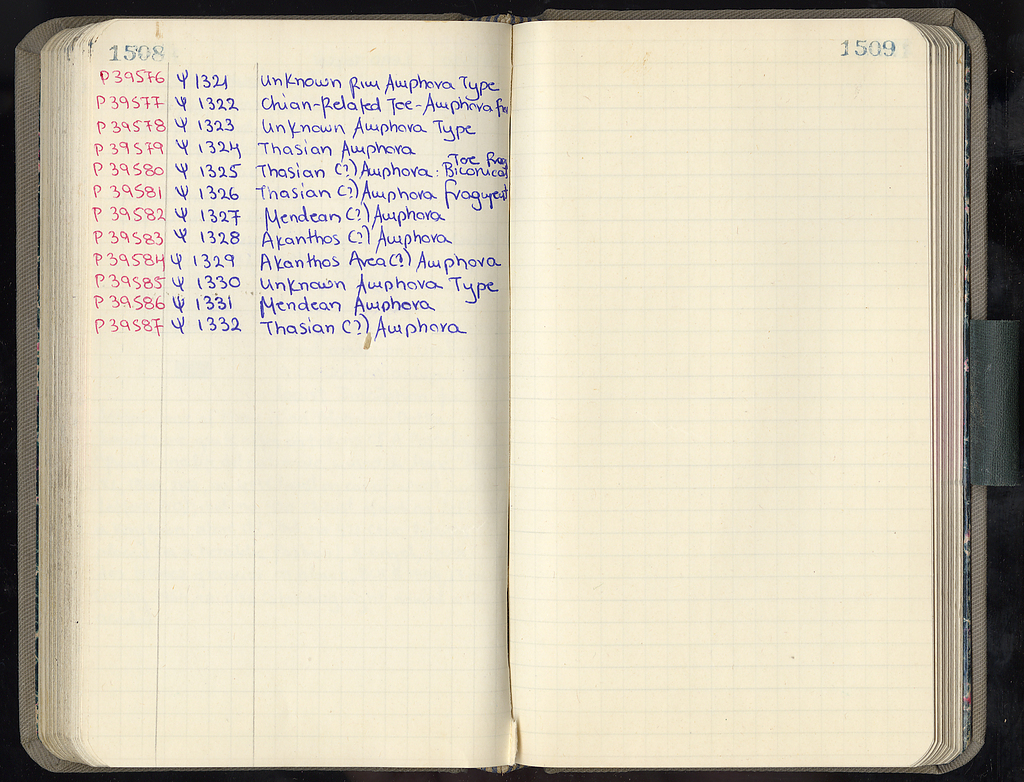 1508
P 39576 Ψ 1321 Unknown Rim Amphora Type
P 39577 Ψ 1322 Chian-Related Toe-Amphora
P 39578 Ψ 1323 Unknown Amphora Type
P 39579 Ψ 1324 Thasian Amphora
P 39580 Ψ 1325 Thasian (?) Amphora: Biconical Toe
P 39581 Ψ 1326 Thasian (?) Amphora fragment
P 39582 Ψ 1327 Mendean (?) Amphora
P 39583 Ψ 1328 Akanthos (?) Amphora
P 39584 Ψ 1329 Akanthos Area (?) Amphora
P 39585 Ψ 1330 Unknown Amphora Type
P 39586 Ψ 1331 Mendean Amphora
P 39587 Ψ 1332 Thasian (?) Amphora
1509